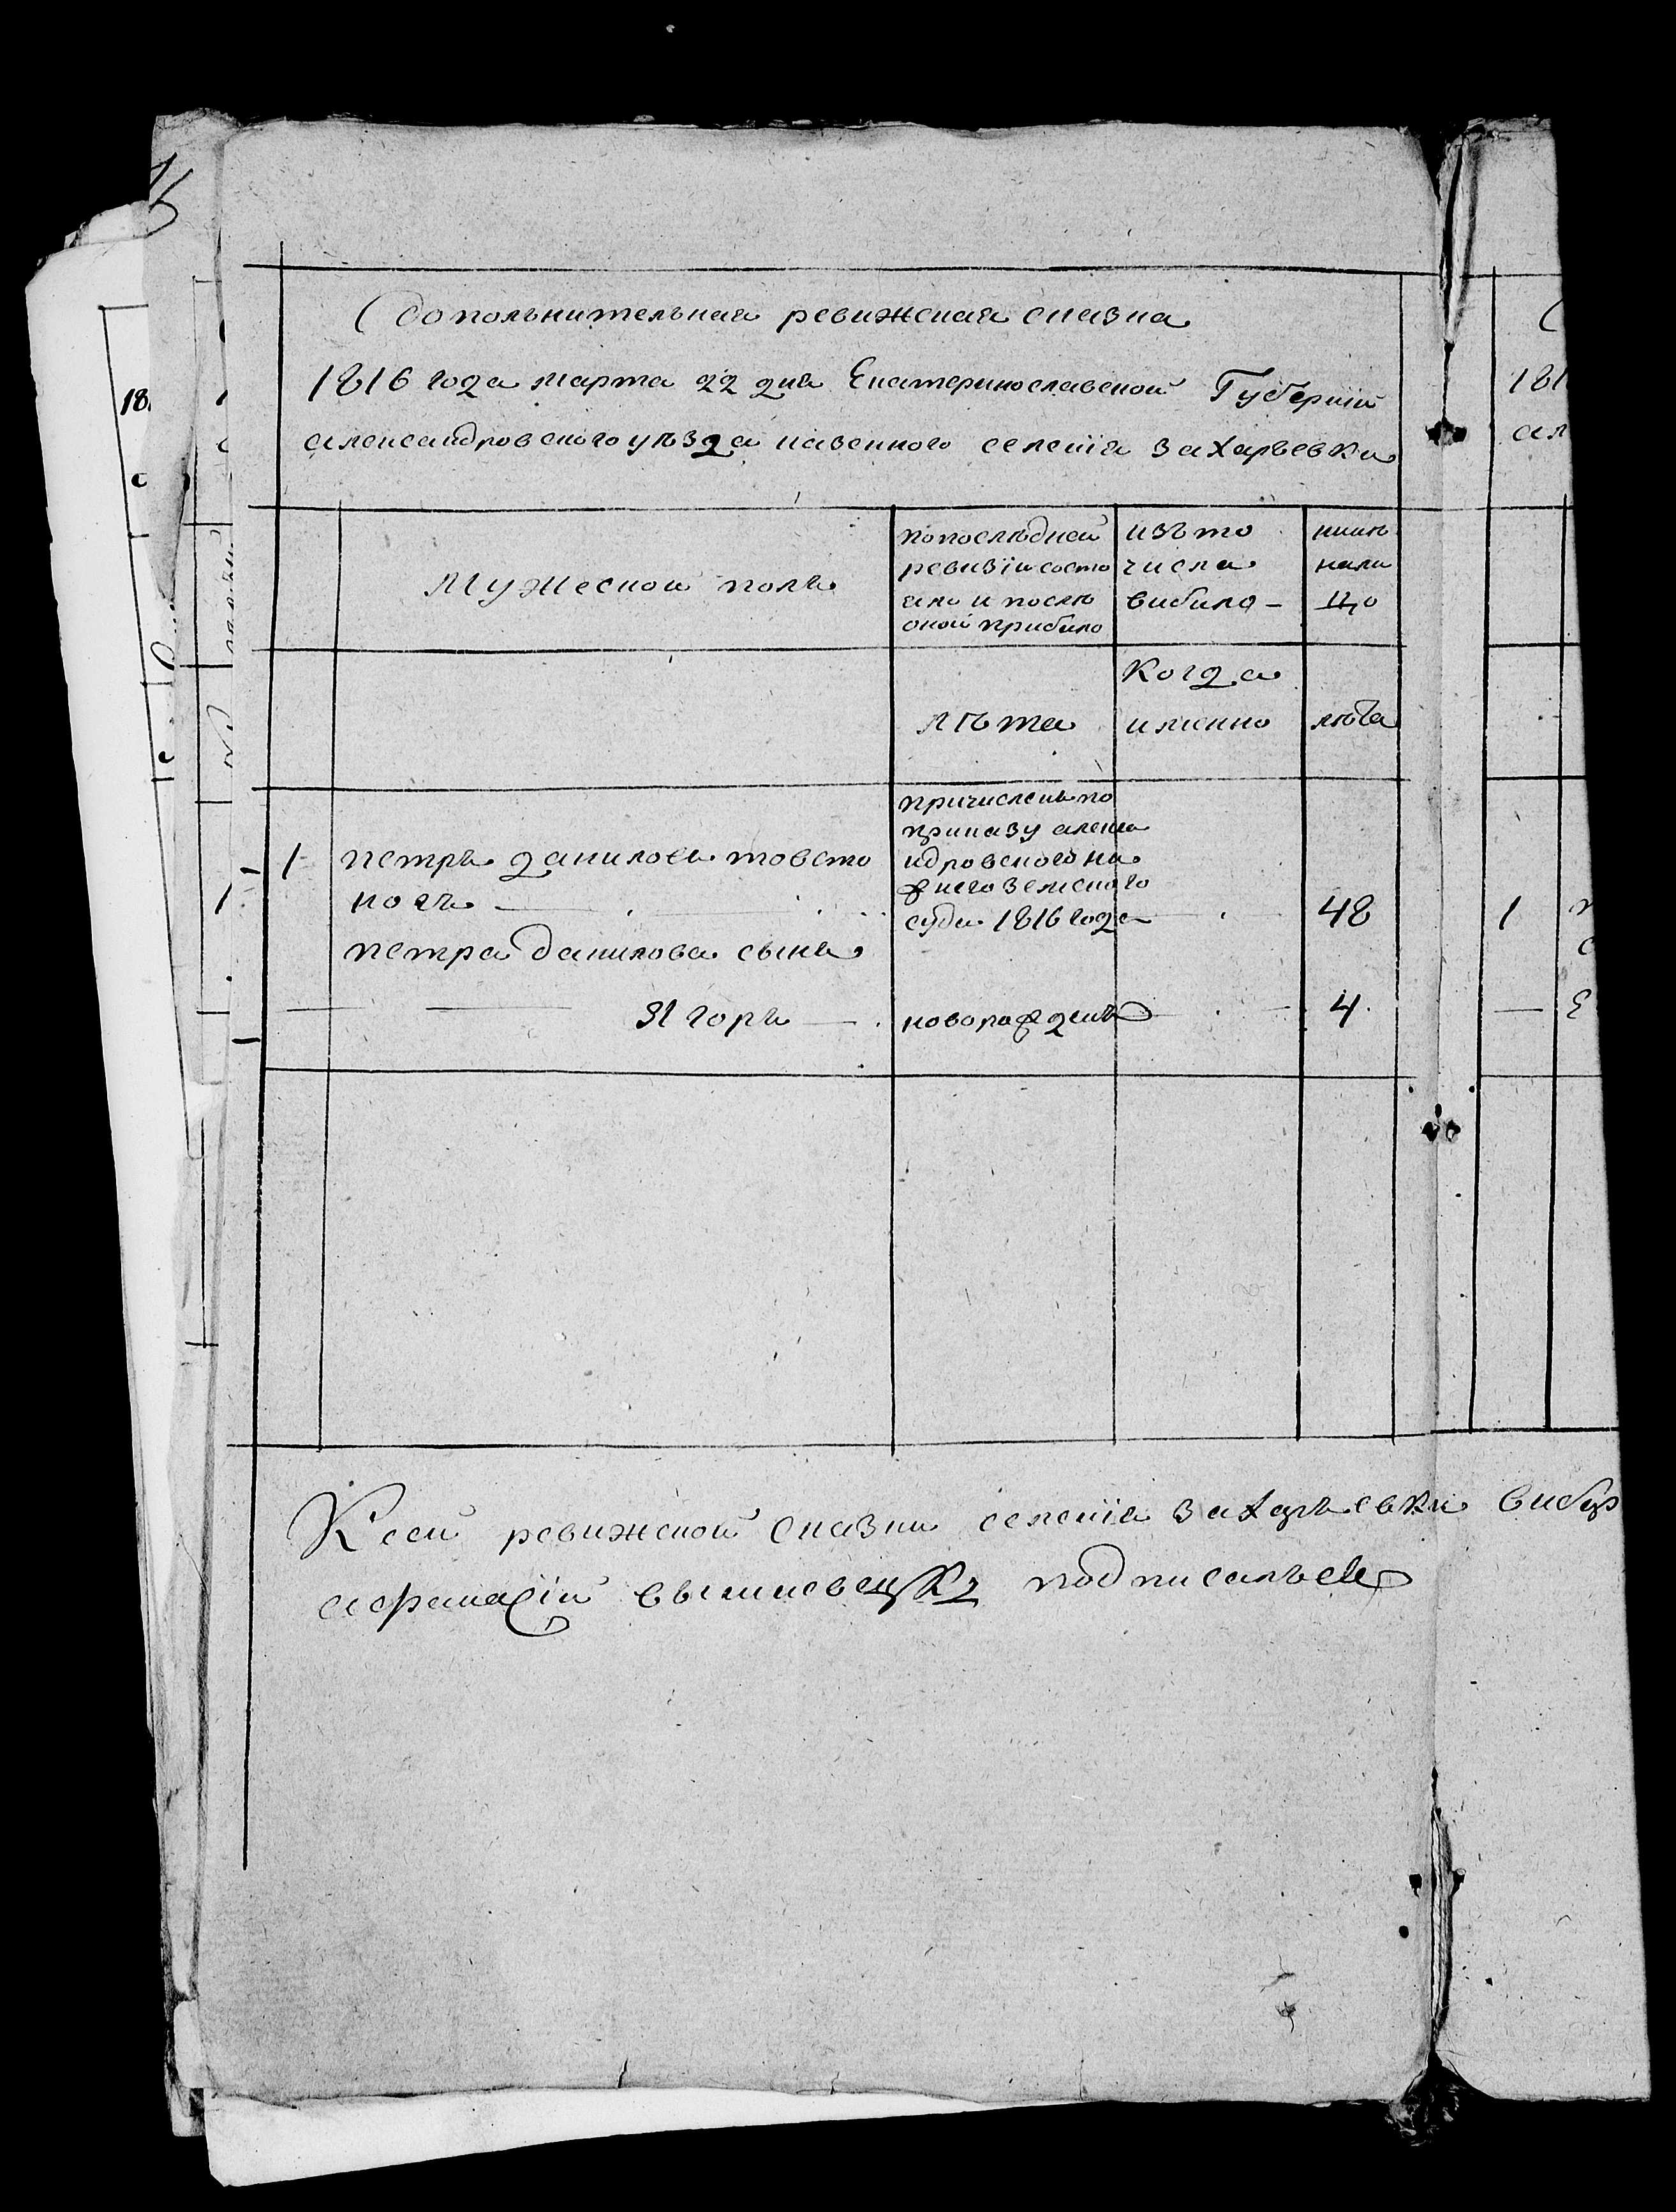 Допольнительная ревижская сказка
1816 года марта 22 дня Екатеринославской Губернiи
александровского уѣзда казенного селенiя захаръевки
Мужескои полъ
попослѣдней
ревизiи состо
яло и послѣ
оной прибило
изъ то
числа
вибило -
нинѣ
нали
цо
лѣта
Когда
именно
лѣта
1
петръ даниловъ товсто
ногъ
причисленъ по
приказу алекса
ндровского ни
жнего земского
суда 1816 года
48
петра данилова сынъ
Ягоръ
новорожденъ
4
К сей ревижской сказки селенiя захаръевки вибор
афанасiй подписалъся
18
1
1
181
ал
1